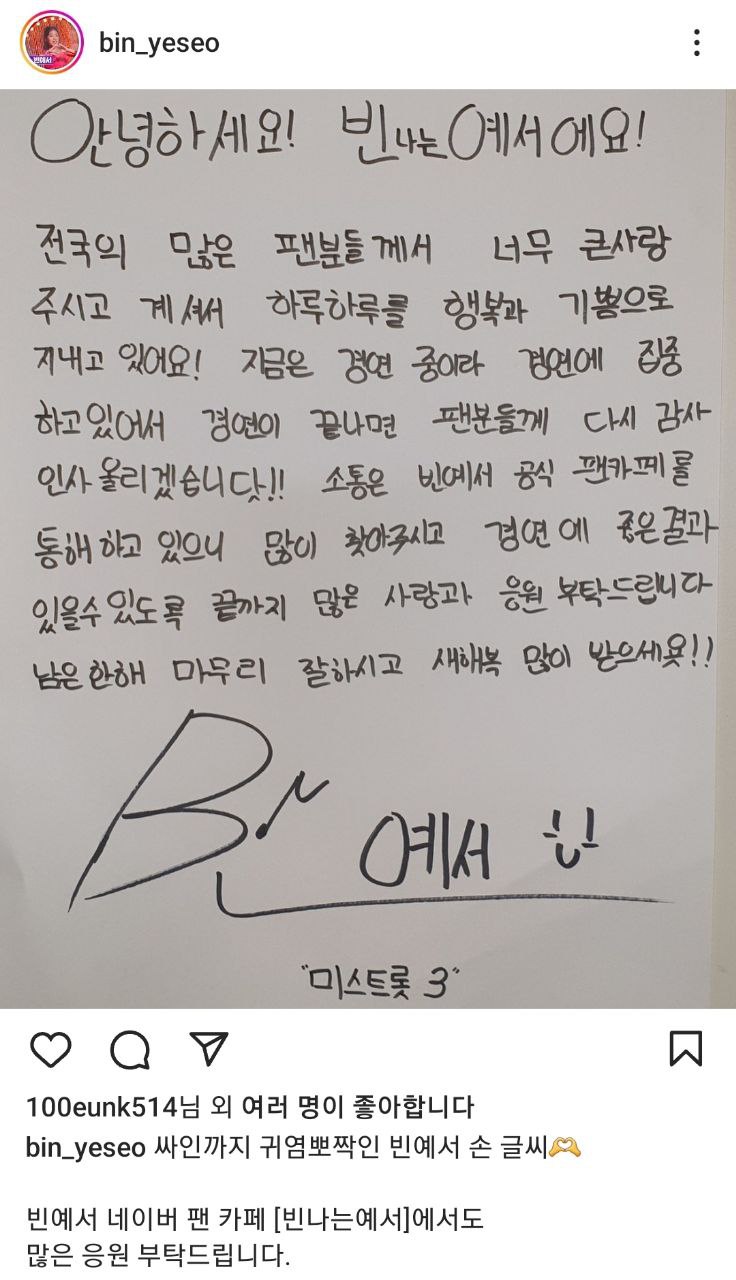 bin_yeseo
안녕하세요! 빈나는예서에요!
전국의 많은 팬분들께서 너무 큰사랑
주시고 계셔서 하루하루를 행복과 기쁨으로
지내고 있어요! 지금은 경연 중이라 경연에 집중
하고있어서 경연이 끝나면 팬분들께 다시 감사
인사올리겠습니닷!! 소통은 빈예서 공식 팬카페를
통해하고 있으니 많이 찾아주시고 경연에 좋은결과
있을수있도록 끝까지 많은 사랑과 응원부탁드립니다
남은한해 마무리 잘하시고 새해복 많이 받으세욧!!
Bin 예서
"미스트롯 3"
100eunk514님 외 여러 명이 좋아합니다
bin_yeseo 싸인까지 귀염뽀짝인 빈예서 손 글씨🫶
빈예서 네이버 팬 카페 [빈나는예서]에서도
많은 응원 부탁드립니다.